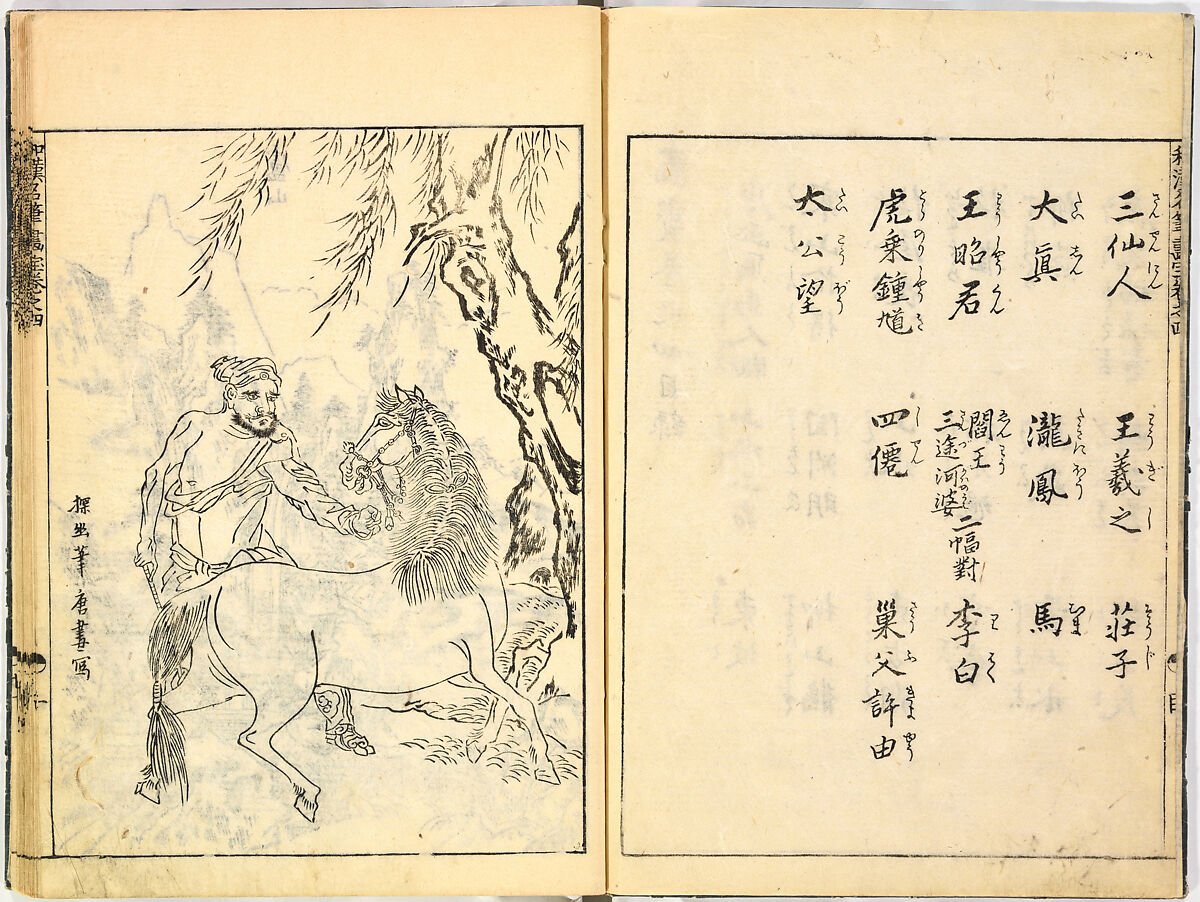 三仙人 王羲之 莊子
大眞 瀧鳳 馬
王昭君 閻王 三途河婆 二幅對 李白
虎乗鍾馗 四僊 巣父許由
太公望
探幽筆唐畫写
和漢名筆畫宝巻之四